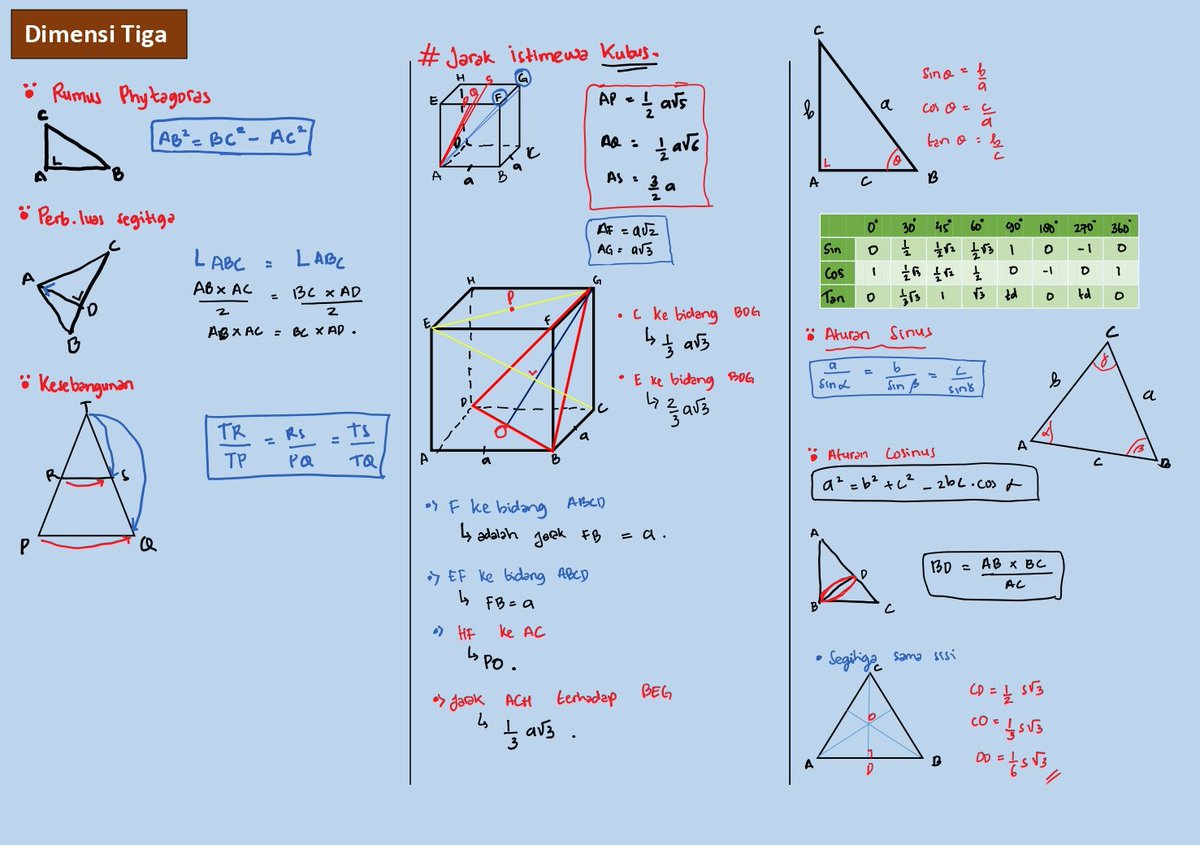 Dimensi Tiga
Rumus Phytagoras
C
A
B
AB² = BC² - AC²
Perb. luas segitiga
C
A
D
B
L ABC = L ABC
AB x AC / 2 = BC x AD / 2
AB x AC = BC x AD.
Kesebangunan
T
R
S
P
Q
TR/TP = RS/PQ = TS/TQ
# Jarak istimewa Kubus.
H
S
G
E
Q
F
D
C
A
B
a
a
AP = 1/2 a√5
AQ = 1/2 a√6
AS = 3/2 a
AF = a√2
AG = a√3
H
G
P
E
F
D
C
O
A
B
a
a
• C ke bidang BDG
↳ 1/3 a√3
• E ke bidang BDG
↳ 2/3 a√3
F ke bidang ABCD
↳ adalah jarak FB = a.
EF ke bidang ABCD
↳ FB = a
HF ke AC
↳ PO.
Jarak ACH terhadap BEG
↳ 1/3 a√3.
C
b
a
A
c
θ
B
sin θ = b/a
cos θ = c/a
tan θ = b/c
0° 30° 45° 60° 90° 180° 270° 360°
Sin 0 1/2 1/2√2 1/2√3 1 0 -1 0
Cos 1 1/2√3 1/2√2 1/2 0 -1 0 1
Tan 0 1/3√3 1 √3 td 0 td 0
Aturan Sinus
a/sin α = b/sin β = c/sin γ
C
γ
b
a
A
α
c
β
B
Aturan Cosinus
a² = b² + c² - 2bc . cos α
A
D
B
C
BD = AB x BC / AC
• Segitiga sama sisi
C
O
A
D
B
CD = 1/2 s√3
CO = 1/3 s√3
OD = 1/6 s√3